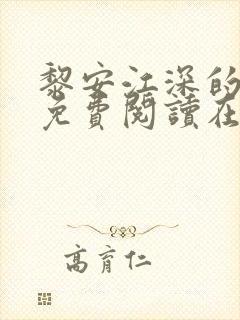 黎安江深的
免費閱讀在
高育仁